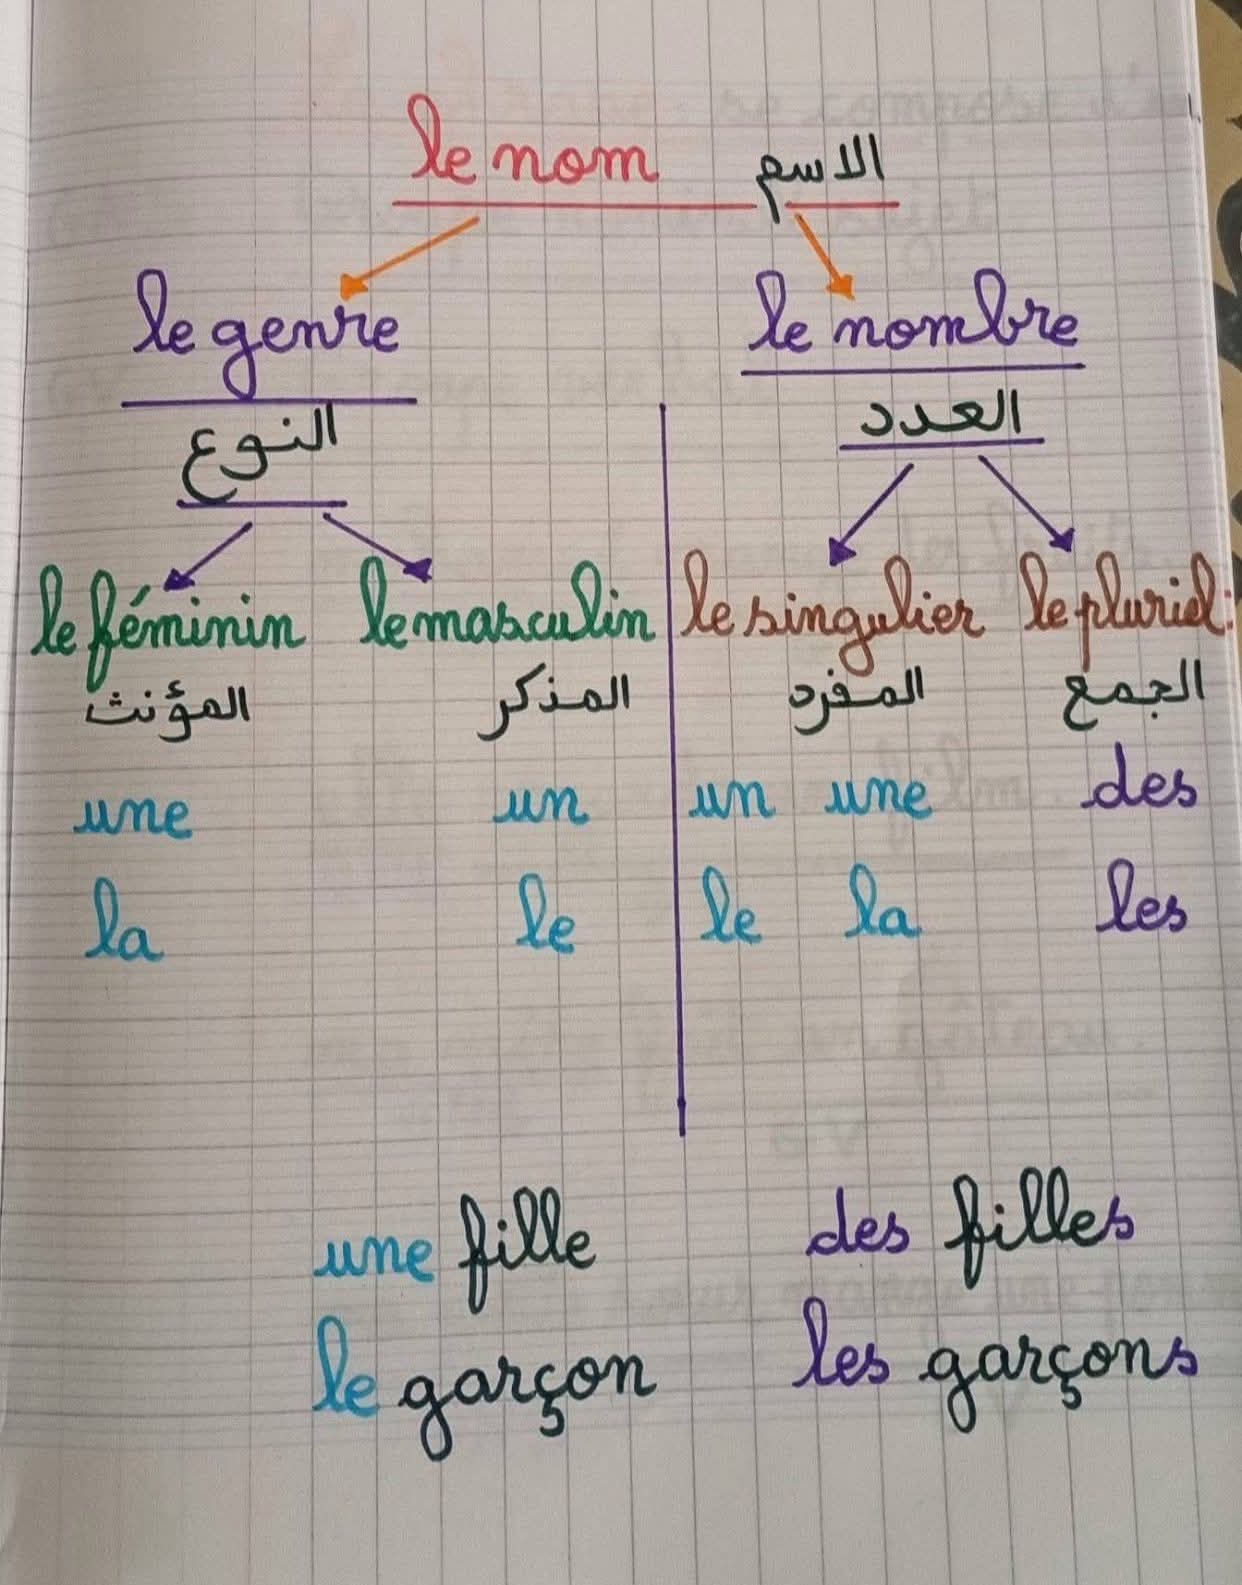 le nom الاسم
le genre le nombre
النوع العدد
le féminin le masculin le singulier le pluriel:
المؤنث المذكر المفرد الجمع
une un un une des
la le le la les
une fille des filles
le garçon les garçons